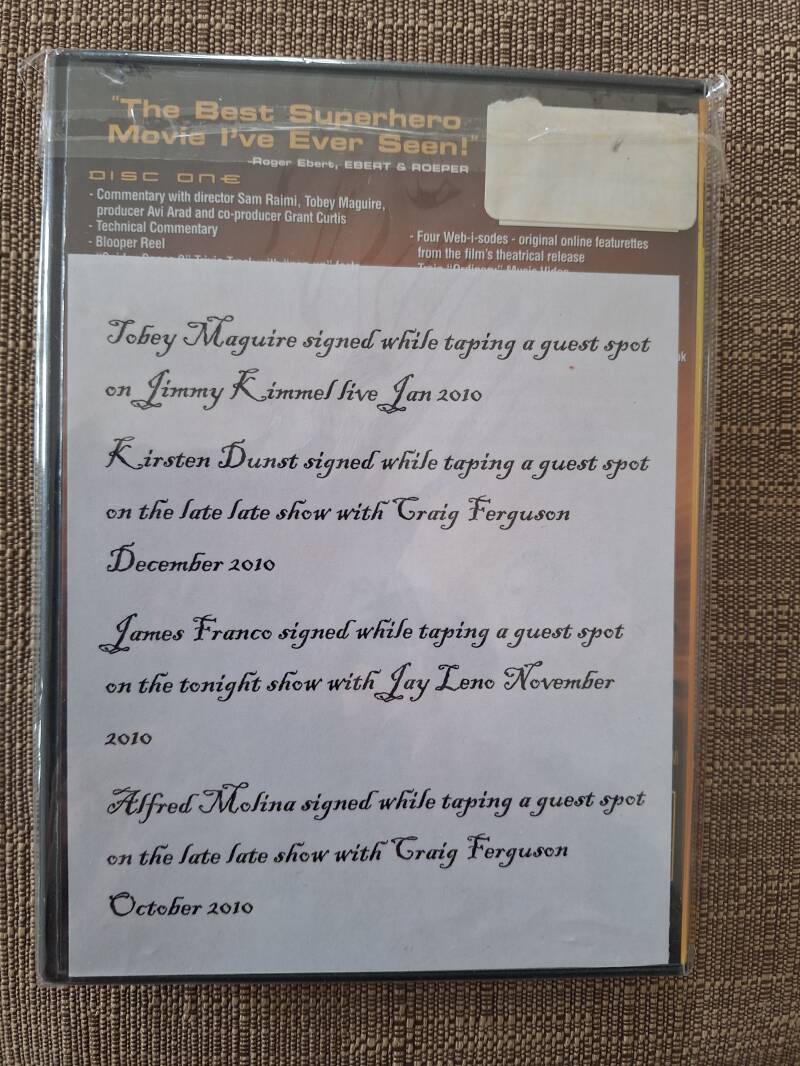 "The Best Superhero
Movie I've Ever Seen!"
-Roger Ebert, EBERT & ROEPER
DISC ONE
- Commentary with director Sam Raimi, Tobey Maguire,
producer Avi Arad and co-producer Grant Curtis
- Technical Commentary
- Blooper Reel
- Four Web-i-sodes - original online featurettes
from the film's theatrical release
Train "Ordinary" Music Video
Tobey Maguire signed while taping a guest spot
on Jimmy Kimmel live Jan 2010
Kirsten Dunst signed while taping a guest spot
on the late late show with Craig Ferguson
December 2010
James Franco signed while taping a guest spot
on the tonight show with Jay Leno November
2010
Alfred Molina signed while taping a guest spot
on the late late show with Craig Ferguson
October 2010